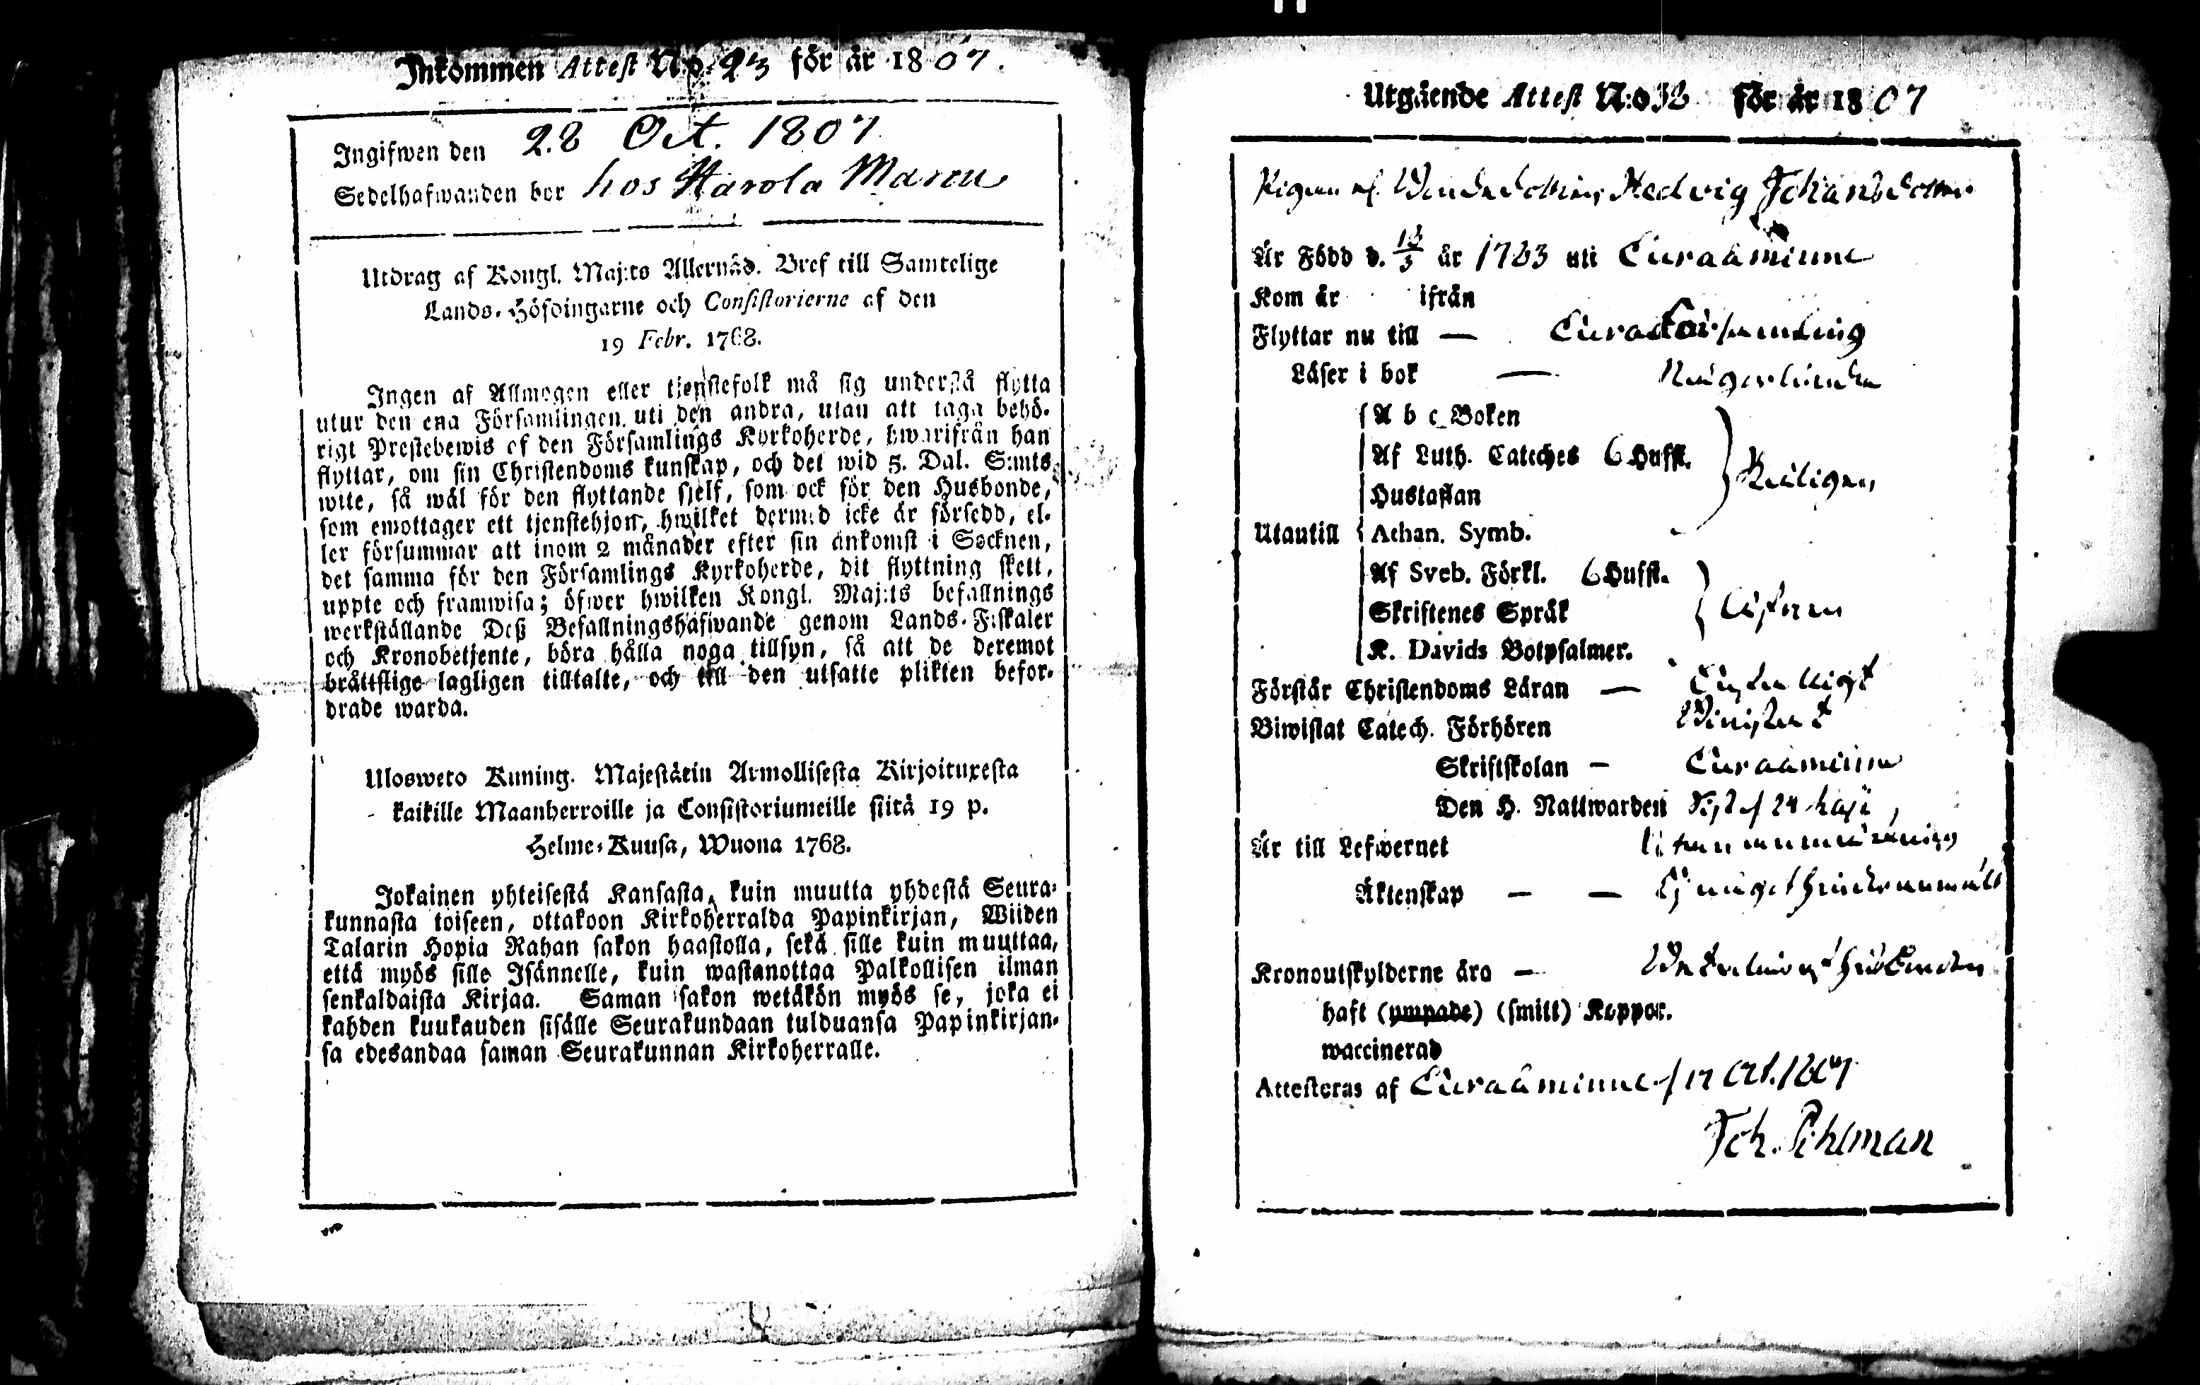 Inkommen Attest N:o 23 för år 1807.
Ingifwen den 28 Oct. 1807
Sedelhafwanden bor hos Harola Mattu
Utdrag af Kongl. Maj:ts Allernåd. Bref till Samtelige
Lands-Höfdingarne och Consistorierne af den
19 Febr. 1768.
Ingen af Allmogen eller tjenstefolk må sig understå flytta
utur den ena Församlingen uti den andra, utan att taga behö-
rigt Prestebewis of den Församlings Kyrkoherde, hwarifrån han
flyttar, om sin Christendoms kunskap, och det wid 5. Dal. S:mts
wite, så wäl för den flyttande sjelf, som ock för den Husbonde,
som emottager ett tjenstehjon, hwilket dermed icke är försedd, el-
ler försummar att inom 2 månader efter sin ankomst i Socknen,
det samma för den Församlings Kyrkoherde, dit flyttning skett,
uppte och framwisa; öfwer hwilken Kongl. Maj:ts befallnings
werkställande Deß Befallningshafwande genom Lands-Fiskaler
och Kronobetjente, böra hålla noga tillsyn, så att de deremot
bråttslige lagligen tilltalte, och till den utsatte plikten befor-
drade warda.
Ulosweto Kuning. Majestätin Armollisesta Kirjoituxesta
kaikille Maanherroille ja Consistoriumeille siitä 19 p.
Helme-Kuusa, Wuona 1768.
Jokainen yhteisestä Kansasta, kuin muutta yhdestä Seura-
kunnasta toiseen, ottakoon Kirkoherralda Papinkirjan, Wiiden
Talarin Hopia Rahan sakon haastolla, sekä sille kuin muuttaa,
että myös sille Isännelle, kuin wastanottaa Palkollisen ilman
senkaldaista Kirjaa. Saman sakon wetäkön myös se, joka ei
kahden kuukauden sisälle Seurakundaan tulduansa Papinkirjan-
sa edesandaa saman Seurakunnan Kirkoherralle.
Utgående Attest N:o 38 för år 1807
Pigan Hedvig Johansdotter
Är Född d. 18/3 år 1783 uti Euraåminne
Kom år ifrån
Flyttar nu till — Eura Församling
Läser i bok —
A b c Boken
Af Luth. Cateches 6 Hufst.
Hustaflan
Utantill Athan. Symb.
Af Sveb. Förkl. 6 Hufst.
Skriftenes Språk
K. Davids Botpsalmer.
Förstår Christendoms Läran —
Biwistat Catech. Förhören
Skriftskolan — Euraåminne
Den H. Nattwarden
Är till Lefwernet
Äktenskap — —
Kronoutskylderne äro —
haft (ympade) (smitt) Koppor.
waccinerad
Attesteras af Euraåminne d 17 Oct. 1807
Joh. Pihlman